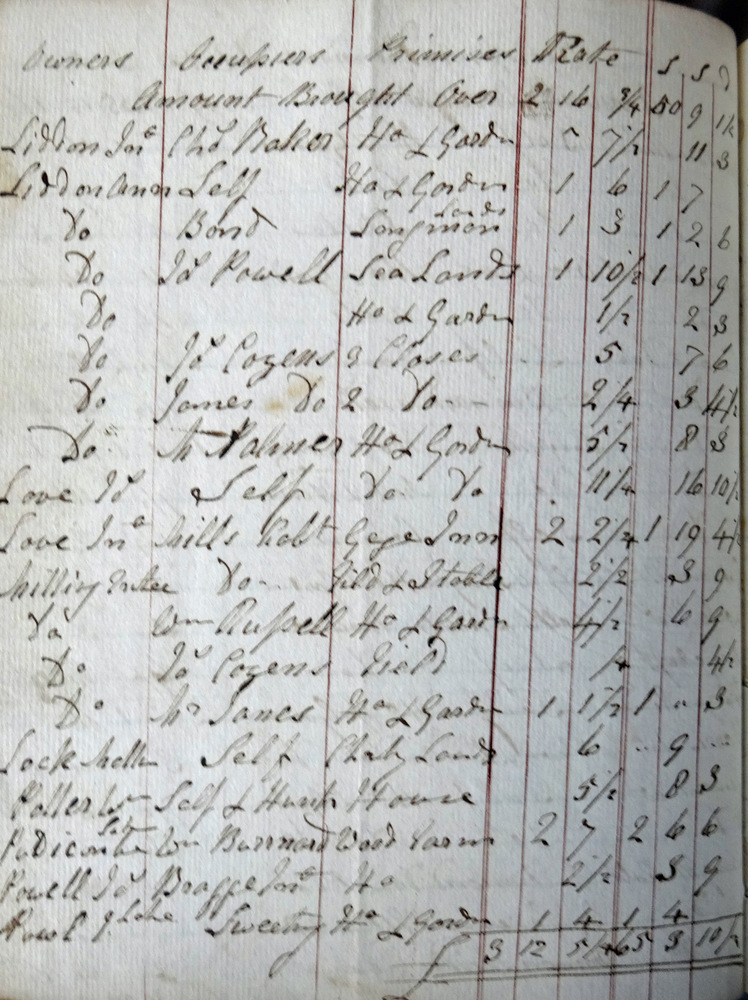 Owners Occupiers Premises Rate £ s d
Amount Brought Over 2 16 3/4 50 9 1½
Liddon Jnº Chs Baker Ho & Garden 7½ 11 3
Liddon Ann Self Ho & Garden 1 6 1 7
Do Bond Longmoor Lands 1 3 1 2 6
Do Js Powell Sea Lands 1 10½ 1 13 9
Do Ho & Garden 1½ 2 3
Do Js Cozens 2 Closes 5 7 6
Do James Do 2 Do 2¼ 3 4½
Do Mr Palmer Ho & Garden 5½ 8 3
Love Js Self Do Do 11¼ 16 10½
Love Jnº Mills Robt Inn 2 2¼ 1 19 4½
Do Field & Stable 2½ 3 9
Do Wm Russell Ho & Garden 4½ 6 9
Do Js Cozens Field ¼ 4½
Do Mr James Ho & Garden 1 1½ 1 " 3
Lock Self Lands 6 9
Wm Self & House 5½ 8 3
Wm Burnard Wood Farm 2 7 2 6 6
Powell Js Bragge Jnº Ho 2½ 3 9
Sweeting Ho & Garden 1 4 1 4
£ 3 12 5¼ 65 3 10½